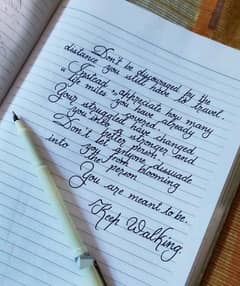 Don't be discouraged by the
distance you still have to travel.
"Instead, appreciate how many
miles you have already
covered.
Your struggles have changed
you into
better stronger and
person
Don't let anyone dissuade
you from blooming
into the person
You are meant to be.
~Keep Walking.